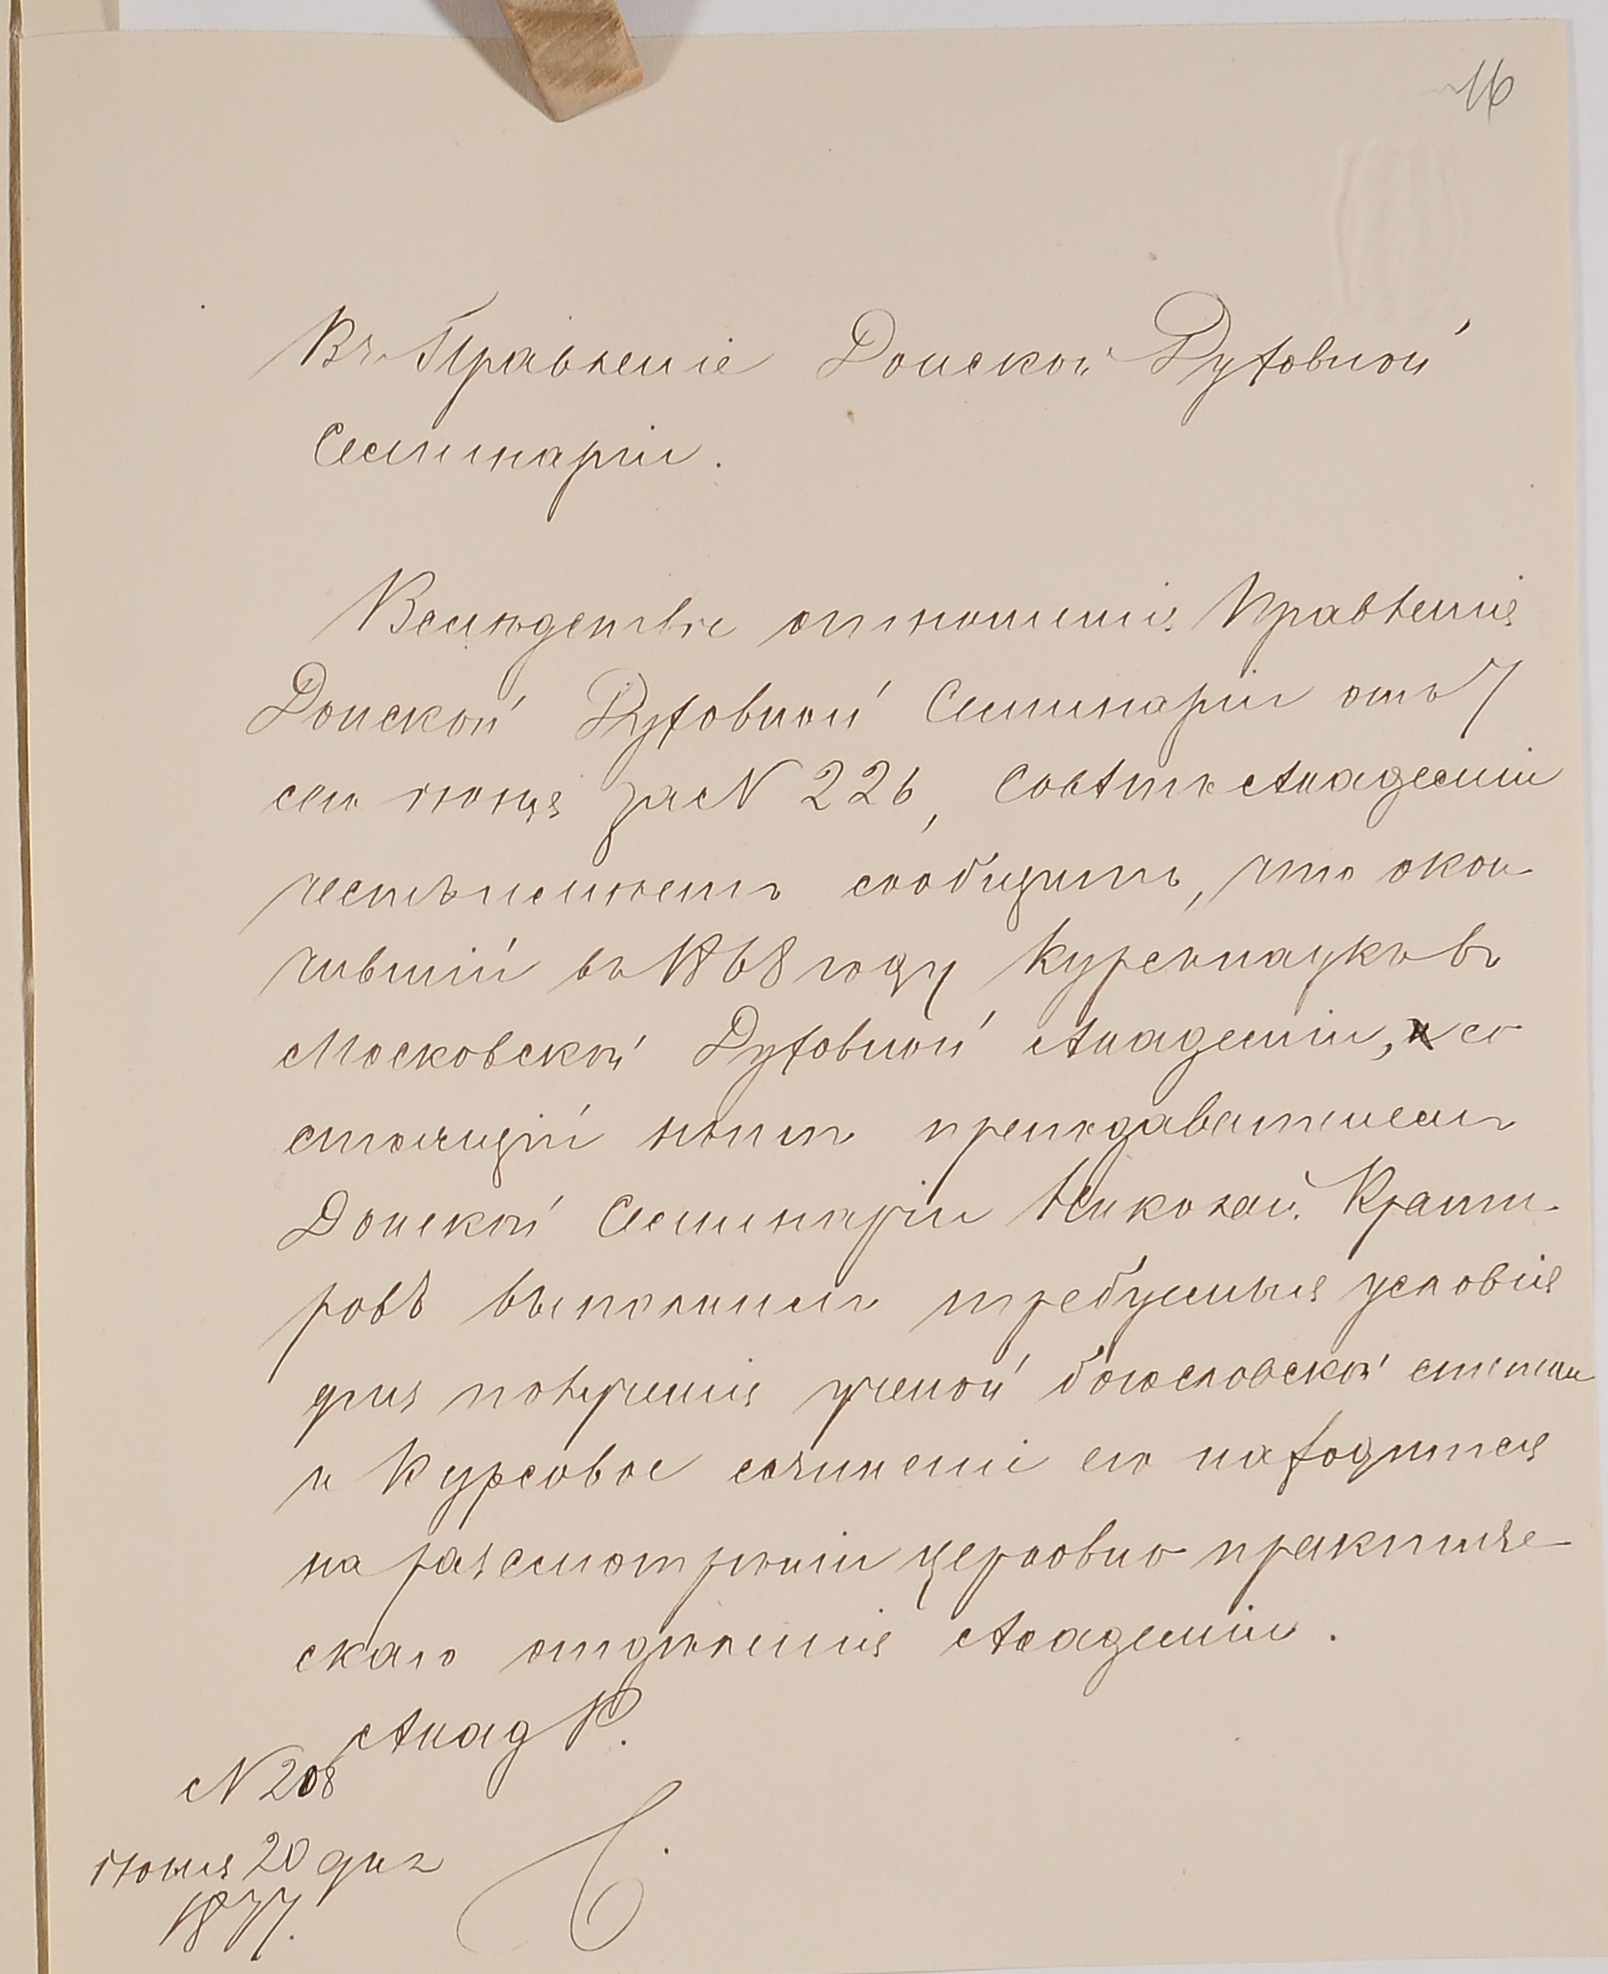 16
Въ Правленіе Донской Духовной
Семинаріи.
Вслѣдствіе отношенія Правленія
Донской Духовной Семинаріи отъ 7
сего іюня за № 226, Совѣтъ Академіи
честь имѣетъ сообщить, что окон-
чившій въ 1868 году курсъ наукъ въ
Московской Духовной Академіи, и со
стоящій нынѣ преподавателемъ
Донской Семинаріи Николай Крати-
ровъ выполнилъ требуемыя условія
для полученія ученой богословской степени
и курсовое сочиненіе его находится
на разсмотрѣніи церковно практиче-
скаго отдѣленія Академіи.
Акад Р.
№ 208
іюня 20 дня
1877.